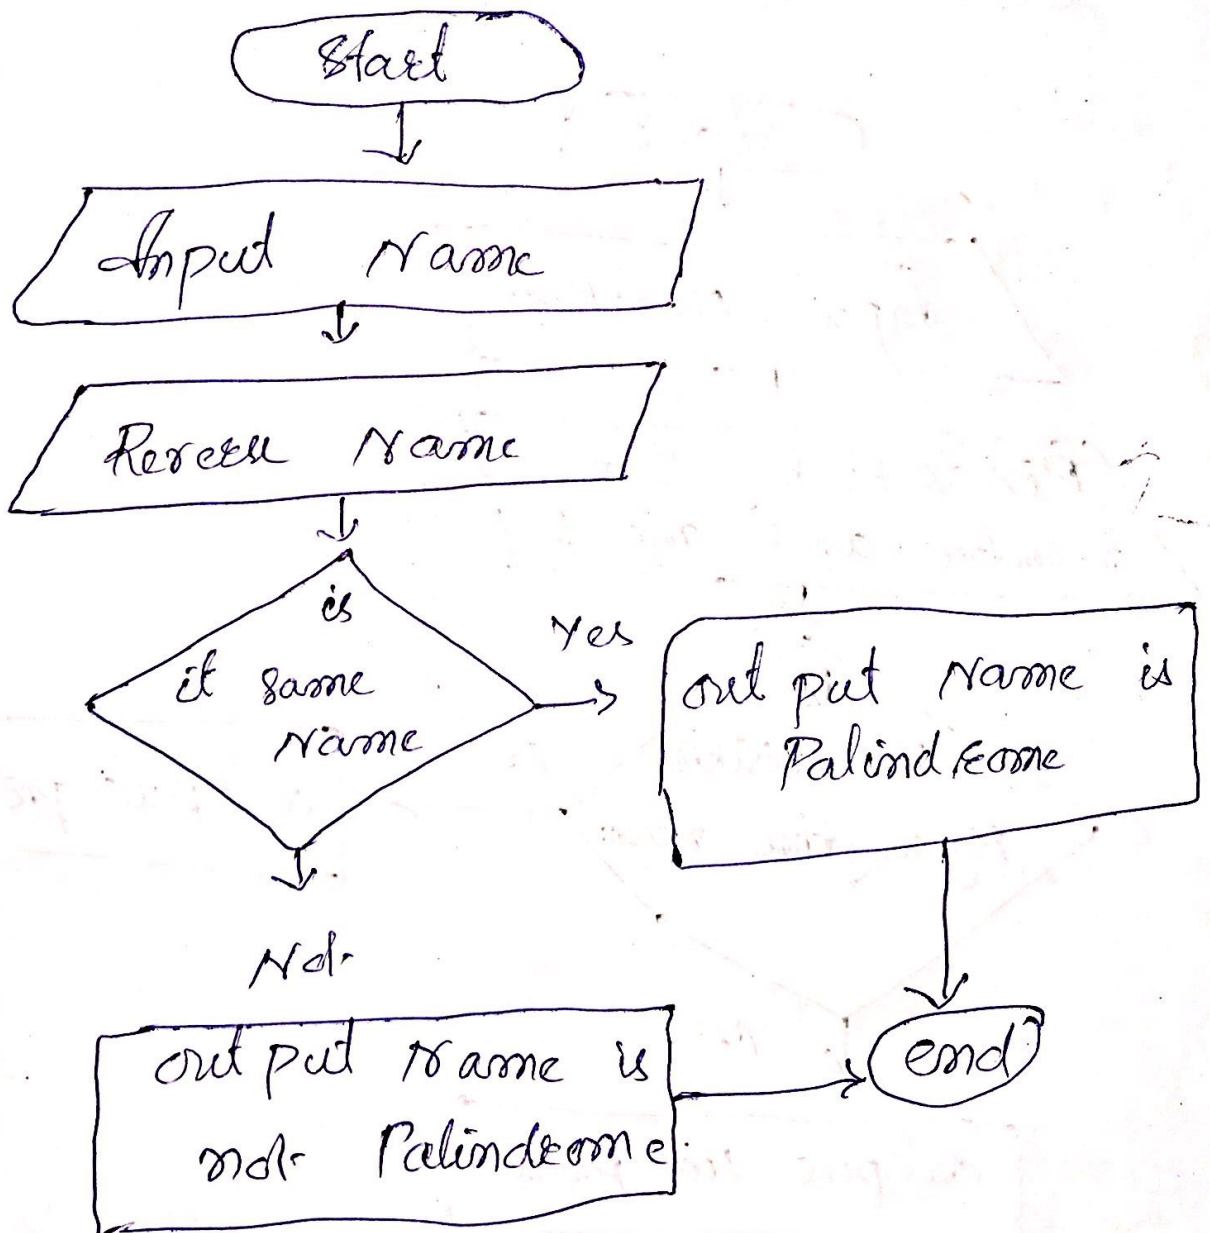 Start
Input Name
Reverse Name
is
it same
Name
Yes
out put Name is
Palindrome
Not
out put Name is
not Palindrome
end